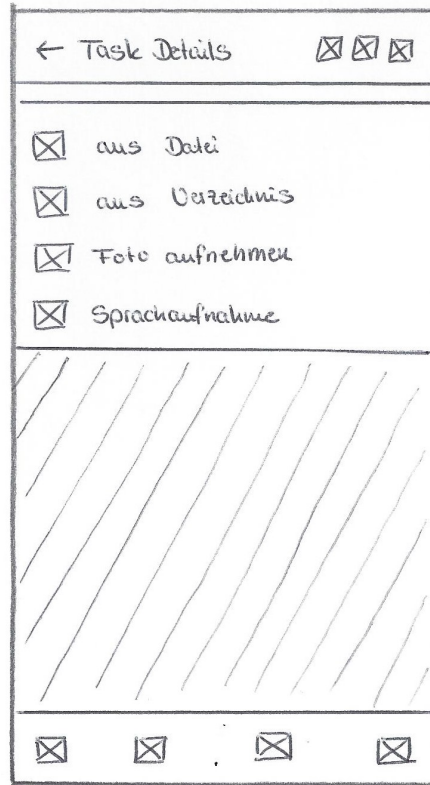 ← Task Details
aus Datei
aus Verzeichnis
Foto aufnehmen
Sprachaufnahme